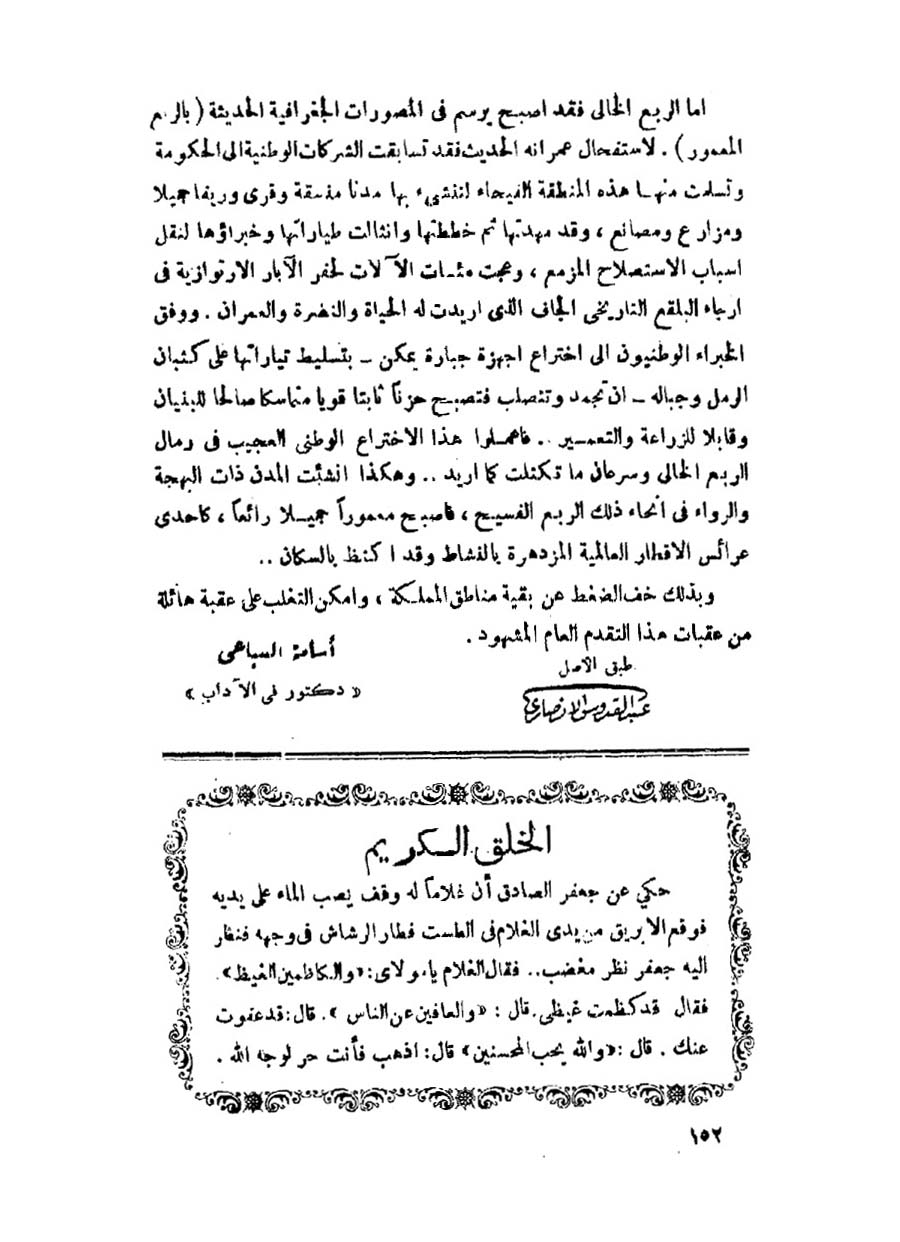 اما الربع الخالى فقد اصبح يرسم فى المصورات الجغرافية الحديثة (بالربع
المعمور) . لاستفحال عمرانه الحديث فقد تسابقت الشركات الوطنية الى الحكومة
وتسلمت منها هذه المنطقة الفيحاء لتنشىء بها مدنا منسقة وقرى وريفا جميلا
ومزارع ومصانع ، وقد مهدتها ثم خططتها وانثالت طياراتها وخبراؤها لنقل
اسباب الاستصلاح المزمع ، وعجت مئات الآلات لحفر الآبار الارتوازية فى
ارجاء البلقع التاريخى الجاف الذى اريدت له الحياة والنضرة والعمران . ووفق
الخبراء الوطنيون الى اختراع اجهزة جبارة يمكن – بتسليط تياراتها على كثبان
الرمل وجباله – ان تجمد وتتصلب فتصبح حزنًا ثابتا قويا متماسكا صالحا للبنيان
وقابلا للزراعة والتعمير .. فاعملوا هذا الاختراع الوطنى العجيب فى رمال
الربع الخالى وسرعان ما تكتلت كما اريد .. وهكذا انشئت المدن ذات البهجة
والرواء فى انحاء ذلك الربع الفسيح ، فاصبح معموراً جميلا رائعاً ، كاحدى
عرائس الاقطار العالمية المزدهرة بالنشاط وقد اكتظ بالسكان ..
وبذلك خف الضغط عن بقية مناطق المملكة ، وامكن التغلب على عقبة هائلة
من عقبات هذا التقدم العام المشهود .
أسامة السباعى
« دكتور فى الآداب »
طبق الاصل
عبد القدوس الانصارى
الخلق الكريم
حكي عن جعفر الصادق أن غلاماً له وقف يصب الماء على يديه
فوقع الابريق من يدى الغلام فى الطست فطار الرشاش فى وجهه فنظر
اليه جعفر نظر مغضب.. فقال الغلام يا مولاى: «والكاظمين الغيظ».
فقال قد كظمت غيظى. قال : «والعافين عن الناس ». قال: قد عفوت
عنك . قال : «والله يحب المحسنين» قال: اذهب فأنت حر لوجه الله .
١٥٢